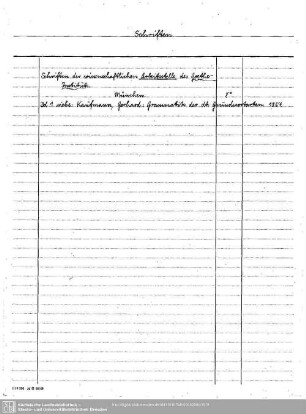 Schriften
Schriften der wissenschaftlichen Arbeitsstelle des Goethe-
Instituts
München 8°
Bd. 1 siehe: Kaufmann, Gerhard: Grammatik der dt. Grundwortarten 1964
Sächsische Landesbibliothek -
Staats- und Universitätsbibliothek Dresden